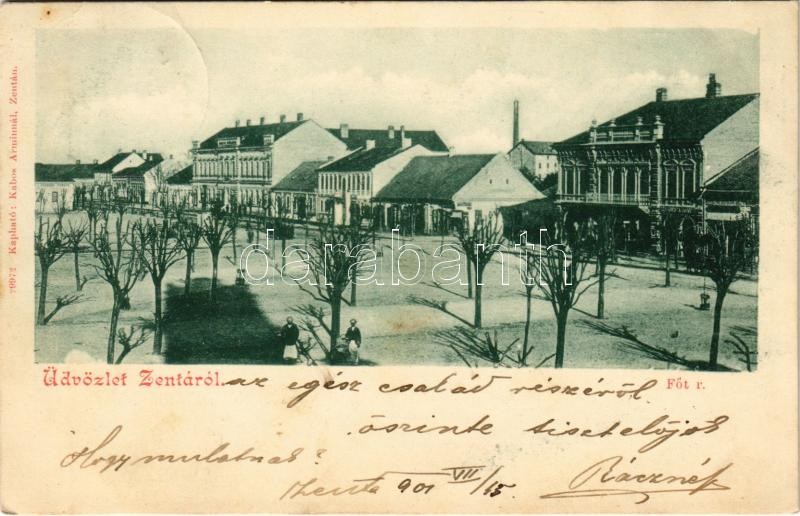 79972 Kapható: Kabos Árminnál, Zentán.
darabanth
Üdvözlet Zentáról. az egész család részéről Főt r.
őszinte tisztelőjök
Hogy mulatnak?
Zenta 901 VII/15
Ráczné